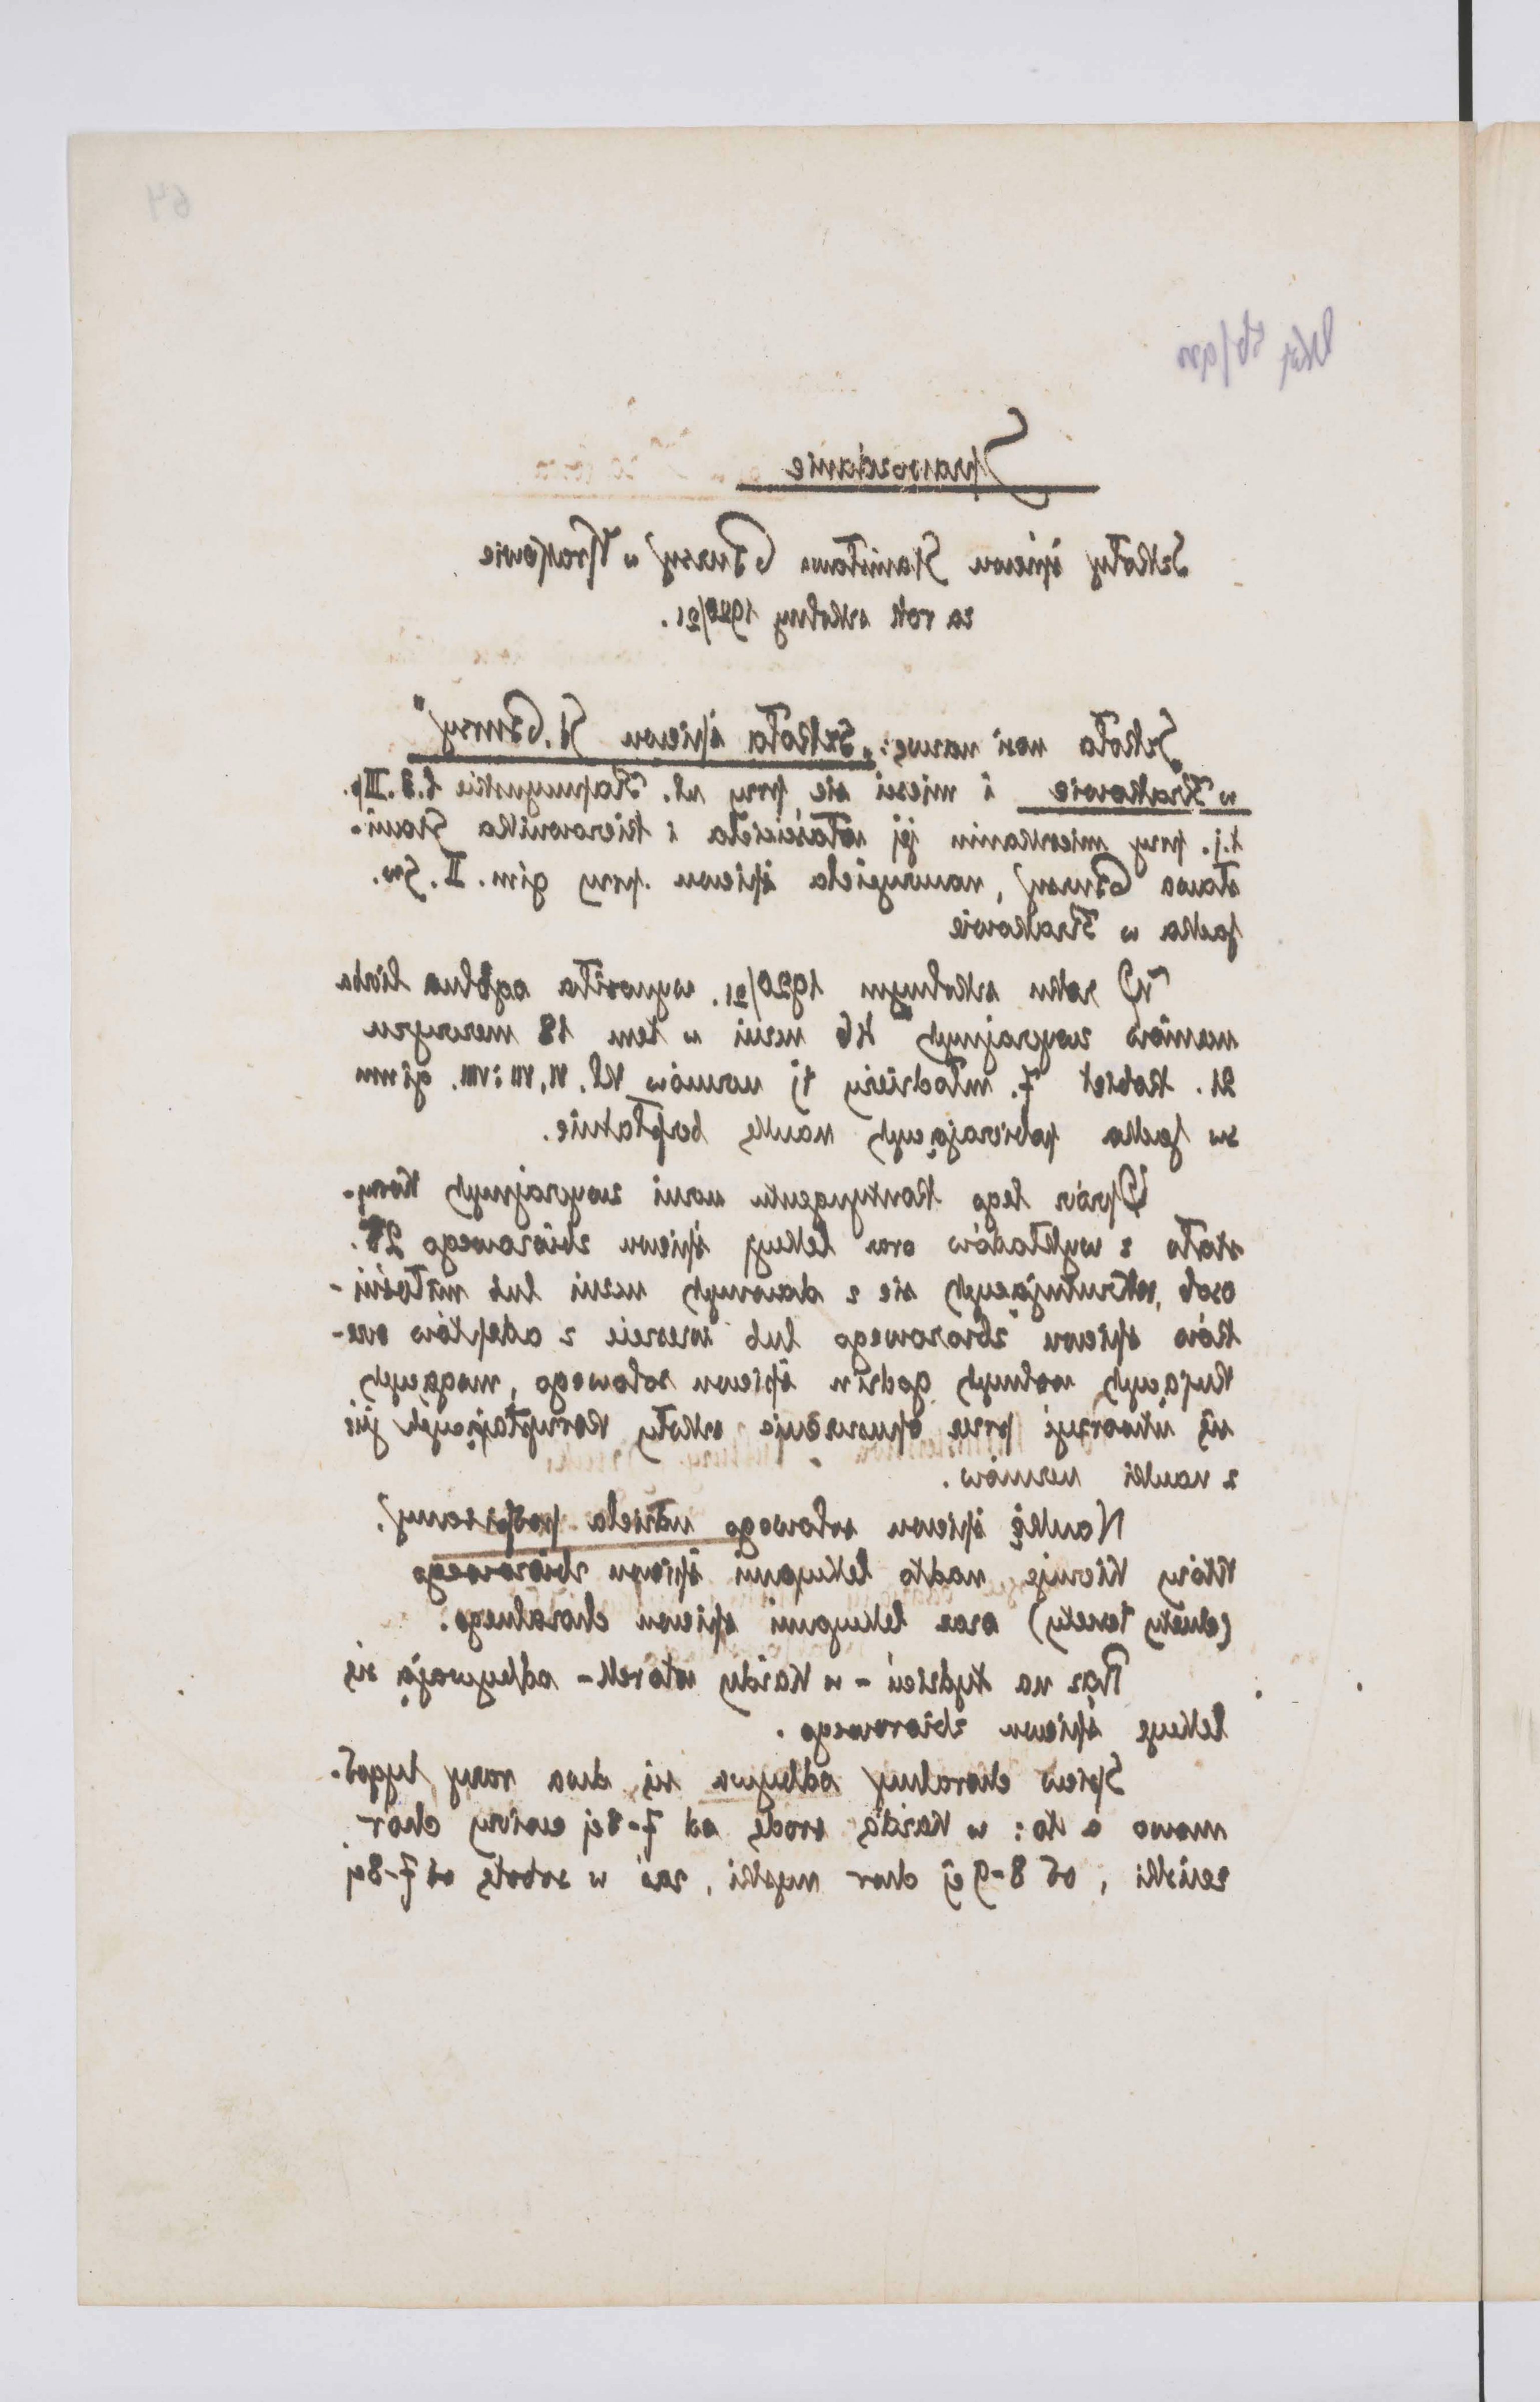 64
Sprawozdanie
Szkoły śpiewu Stanisława Bursy w Krakowie
za rok szkolny 1920/21.
Szkoła nosi nazwę: „Szkoła śpiewu St. Bursy"
w Krakowie i mieści się przy ul. Kapucyńskie l. 3. III p.
t.j. przy mieszkaniu jej właściciela i kierownika Stani-
sława Bursy, nauczyciela śpiewu przy gim. II. Św.
Jacka w Krakowie
W roku szkolnym 1920/21. wynosiła ogólna liczba
uczniów zwyczajnych 46 uczni w tem 18 mężczyzn
21. kobiet 7. młodzieży tj uczniów kl. VI, VII i VIII. gimn
św Jacka pobierających naukę bezpłatnie.
Oprócz tego kontyngentu uczni zwyczajnych korzy-
stało z wykładów oraz lekcyj śpiewu zbiorowego 28.
osób, rekrutujących się z dawnych uczni lub miłośni-
ków śpiewu zbiorowego lub wreszcie z adeptów ocze-
kujących wolnych godzin śpiewu solowego, mogących
się utworzyć przez opuszczenie szkoły korzystających już
z nauki uczniów.
Naukę śpiewu solowego udziela podpisany,
który kieruje nadto lekcyami śpiewu zbiorowego
(duety tercety) oraz lekcyami śpiewu choralnego.
Raz na tydzień - w każdy wtorek - odbywają się
lekcye śpiewu zbiorowego.
Śpiew choralny odbywa się dwa razy tygod-
niowo a to: w każdą środę od 7-8ej ćwiczy chór
żeński, od 8-9ej chór męski, zaś w sobotę od 7-8ej